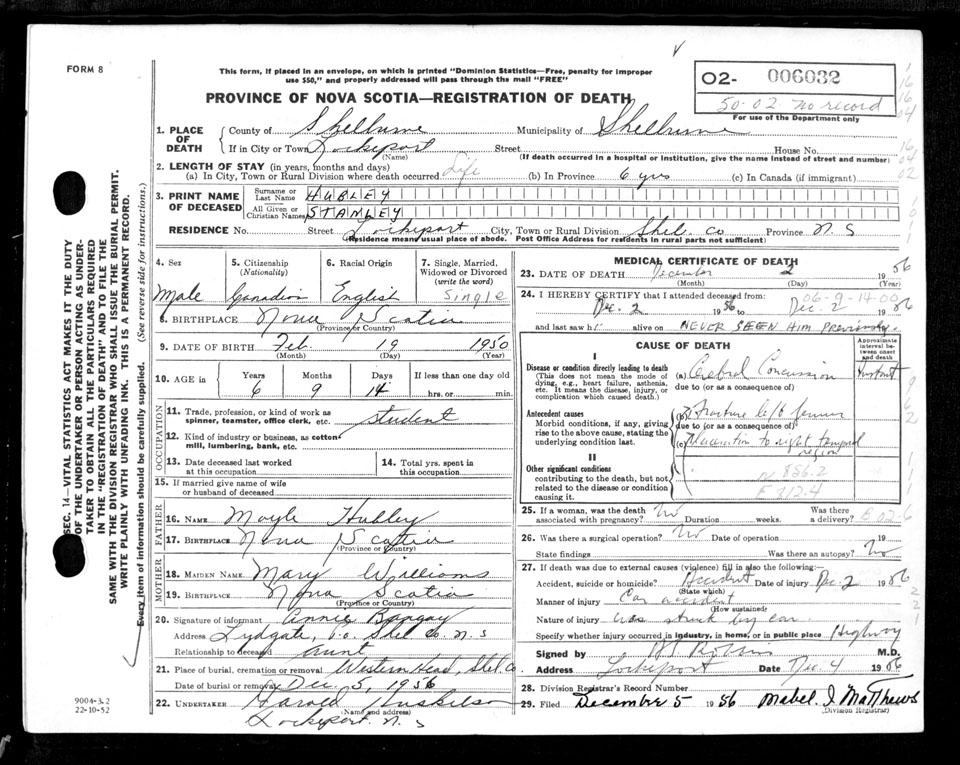 FORM 8
This form, if placed in an envelope, on which is printed "Dominion Statistics—Free, penalty for improper
use $50," and properly addressed will pass through the mail "FREE"
O2- 006032
50-02 no record
For use of the Department only
PROVINCE OF NOVA SCOTIA—REGISTRATION OF DEATH
1. PLACE OF DEATH
County of Shelburne Municipality of Shelburne
If in City or Town Lockeport Street House No.
(Name) (If death occurred in a hospital or institution, give the name instead of street and number)
2. LENGTH OF STAY (in years, months and days)
(a) In City, Town or Rural Division where death occurred Life (b) In Province 6 yrs (c) In Canada (if immigrant)
3. PRINT NAME OF DECEASED
Surname or Last Name HUBLEY
All Given or Christian Names STANLEY
RESIDENCE No. Street Lockeport City, Town or Rural Division Shel. Co Province N. S
(Residence means usual place of abode. Post Office Address for residents in rural parts not sufficient)
4. Sex
Male
5. Citizenship
(Nationality)
Canadian
6. Racial Origin
English
7. Single, Married, Widowed or Divorced
(write the word)
Single
8. BIRTHPLACE Nova Scotia
(Province or Country)
9. DATE OF BIRTH Feb. 19 1950
(Month) (Day) (Year)
10. AGE in Years Months Days If less than one day old
6 9 14 hrs. or min.
OCCUPATION
11. Trade, profession, or kind of work as
spinner, teamster, office clerk, etc. student
12. Kind of industry or business, as cotton-
mill, lumbering, bank, etc.
13. Date deceased last worked
at this occupation
14. Total yrs. spent in
this occupation
15. If married give name of wife
or husband of deceased
FATHER
16. NAME Moyle Hubley
17. BIRTHPLACE Nova Scotia
(Province or Country)
MOTHER
18. MAIDEN NAME Mary Williams
19. BIRTHPLACE Nova Scotia
(Province or Country)
20. Signature of informant Annie
Address Lydgate, Shel Co. N. S
Relationship to deceased aunt
21. Place of burial, cremation or removal Western Head, Shel. Co
Date of burial or removal Dec 5, 1956
22. UNDERTAKER Harold Huskilson
(Name and address)
Lockeport N. S
MEDICAL CERTIFICATE OF DEATH
23. DATE OF DEATH December 2 1956
(Month) (Day) (Year)
24. I HEREBY CERTIFY that I attended deceased from:
06-9-14-00
Dec. 2 1956 to Dec-2- 1956
and last saw h alive on NEVER SEEN HIM PREVIOUSLY.
CAUSE OF DEATH
Approximate interval between onset and death
I
Disease or condition directly leading to death
(This does not mean the mode of
dying, e.g., heart failure, asthenia,
etc. It means the disease, injury, or
complication which caused death.)
(a) Cerebral Concussion Instant
due to (or as a consequence of)
Antecedent causes
Morbid conditions, if any, giving
rise to the above cause, stating the
underlying condition last.
(b) Fracture left femur
due to (or as a consequence of)
(c) Maceration to right temporal
region
II
Other significant conditions
contributing to the death, but not
related to the disease or condition
causing it.
N 856.2
F 812.4
25. If a woman, was the death
associated with pregnancy? No Duration weeks.
Was there
a delivery?
26. Was there a surgical operation? No Date of operation 19
State findings Was there an autopsy? No
27. If death was due to external causes (violence) fill in also the following:—
Accident, suicide or homicide? Accident Date of injury Dec. 2 1956
(State which)
Manner of injury Car accident
(How sustained)
Nature of injury was struck by car
Specify whether injury occurred in industry, in home, or in public place Highway
Signed by M.D.
Address Lockeport Date Dec 4 1956
28. Division Registrar's Record Number
29. Filed December 5 1956 Mabel I. Matthews
(Division Registrar)
SEC. 14—VITAL STATISTICS ACT MAKES IT THE DUTY
OF THE UNDERTAKER OR PERSON ACTING AS UNDER-
TAKER TO OBTAIN ALL THE PARTICULARS REQUIRED
IN THE "REGISTRATION OF DEATH" AND TO FILE THE
SAME WITH THE DIVISION REGISTRAR WHO SHALL ISSUE THE BURIAL PERMIT.
WRITE PLAINLY WITH UNFADING INK. THIS IS A PERMANENT RECORD.
Every item of information should be carefully supplied. (See reverse side for instructions.)
9004-3.2
22-10-52